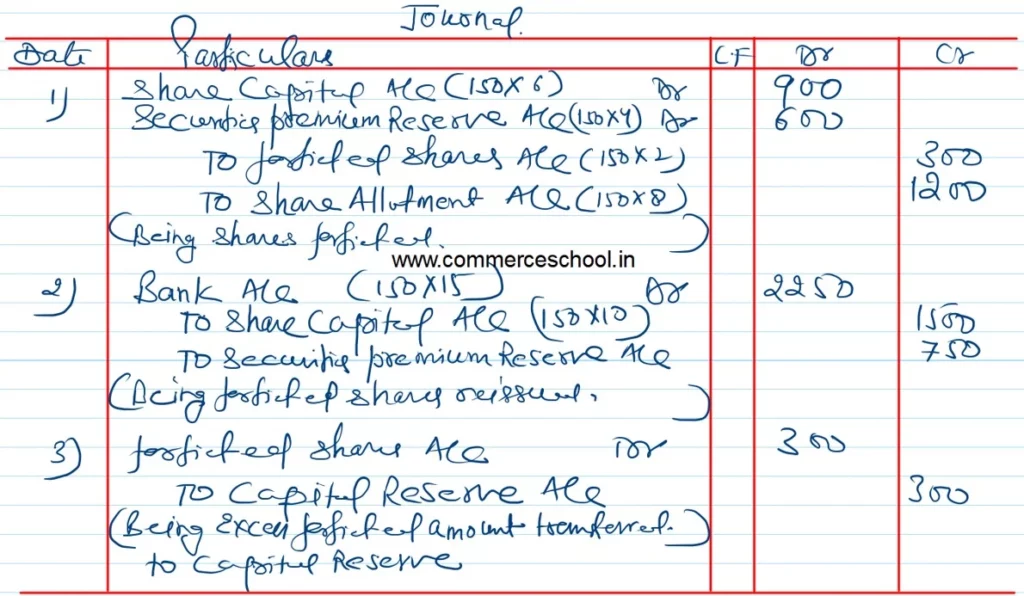 Journal.
Date Particulars C.F Dr Cr
1) Share Capital A/c (150X6) Dr 900
Securities premium Reserve A/c (150X4) Dr 600
To forfieted shares A/c (150X2) 300
To Share Allotment A/c (150X8) 1200
(Being shares forfieted.)
www.commerceschool.in
2) Bank A/c (150X15) Dr 2250
To Share Capital A/c (150X10) 1500
To Securities premium Reserve A/c 750
(Being forfieted shares reissued.)
3) forfieted share A/c Dr 300
To Capital Reserve A/c 300
(Being Excess forfieted amount transferred.)
to Capital Reserve